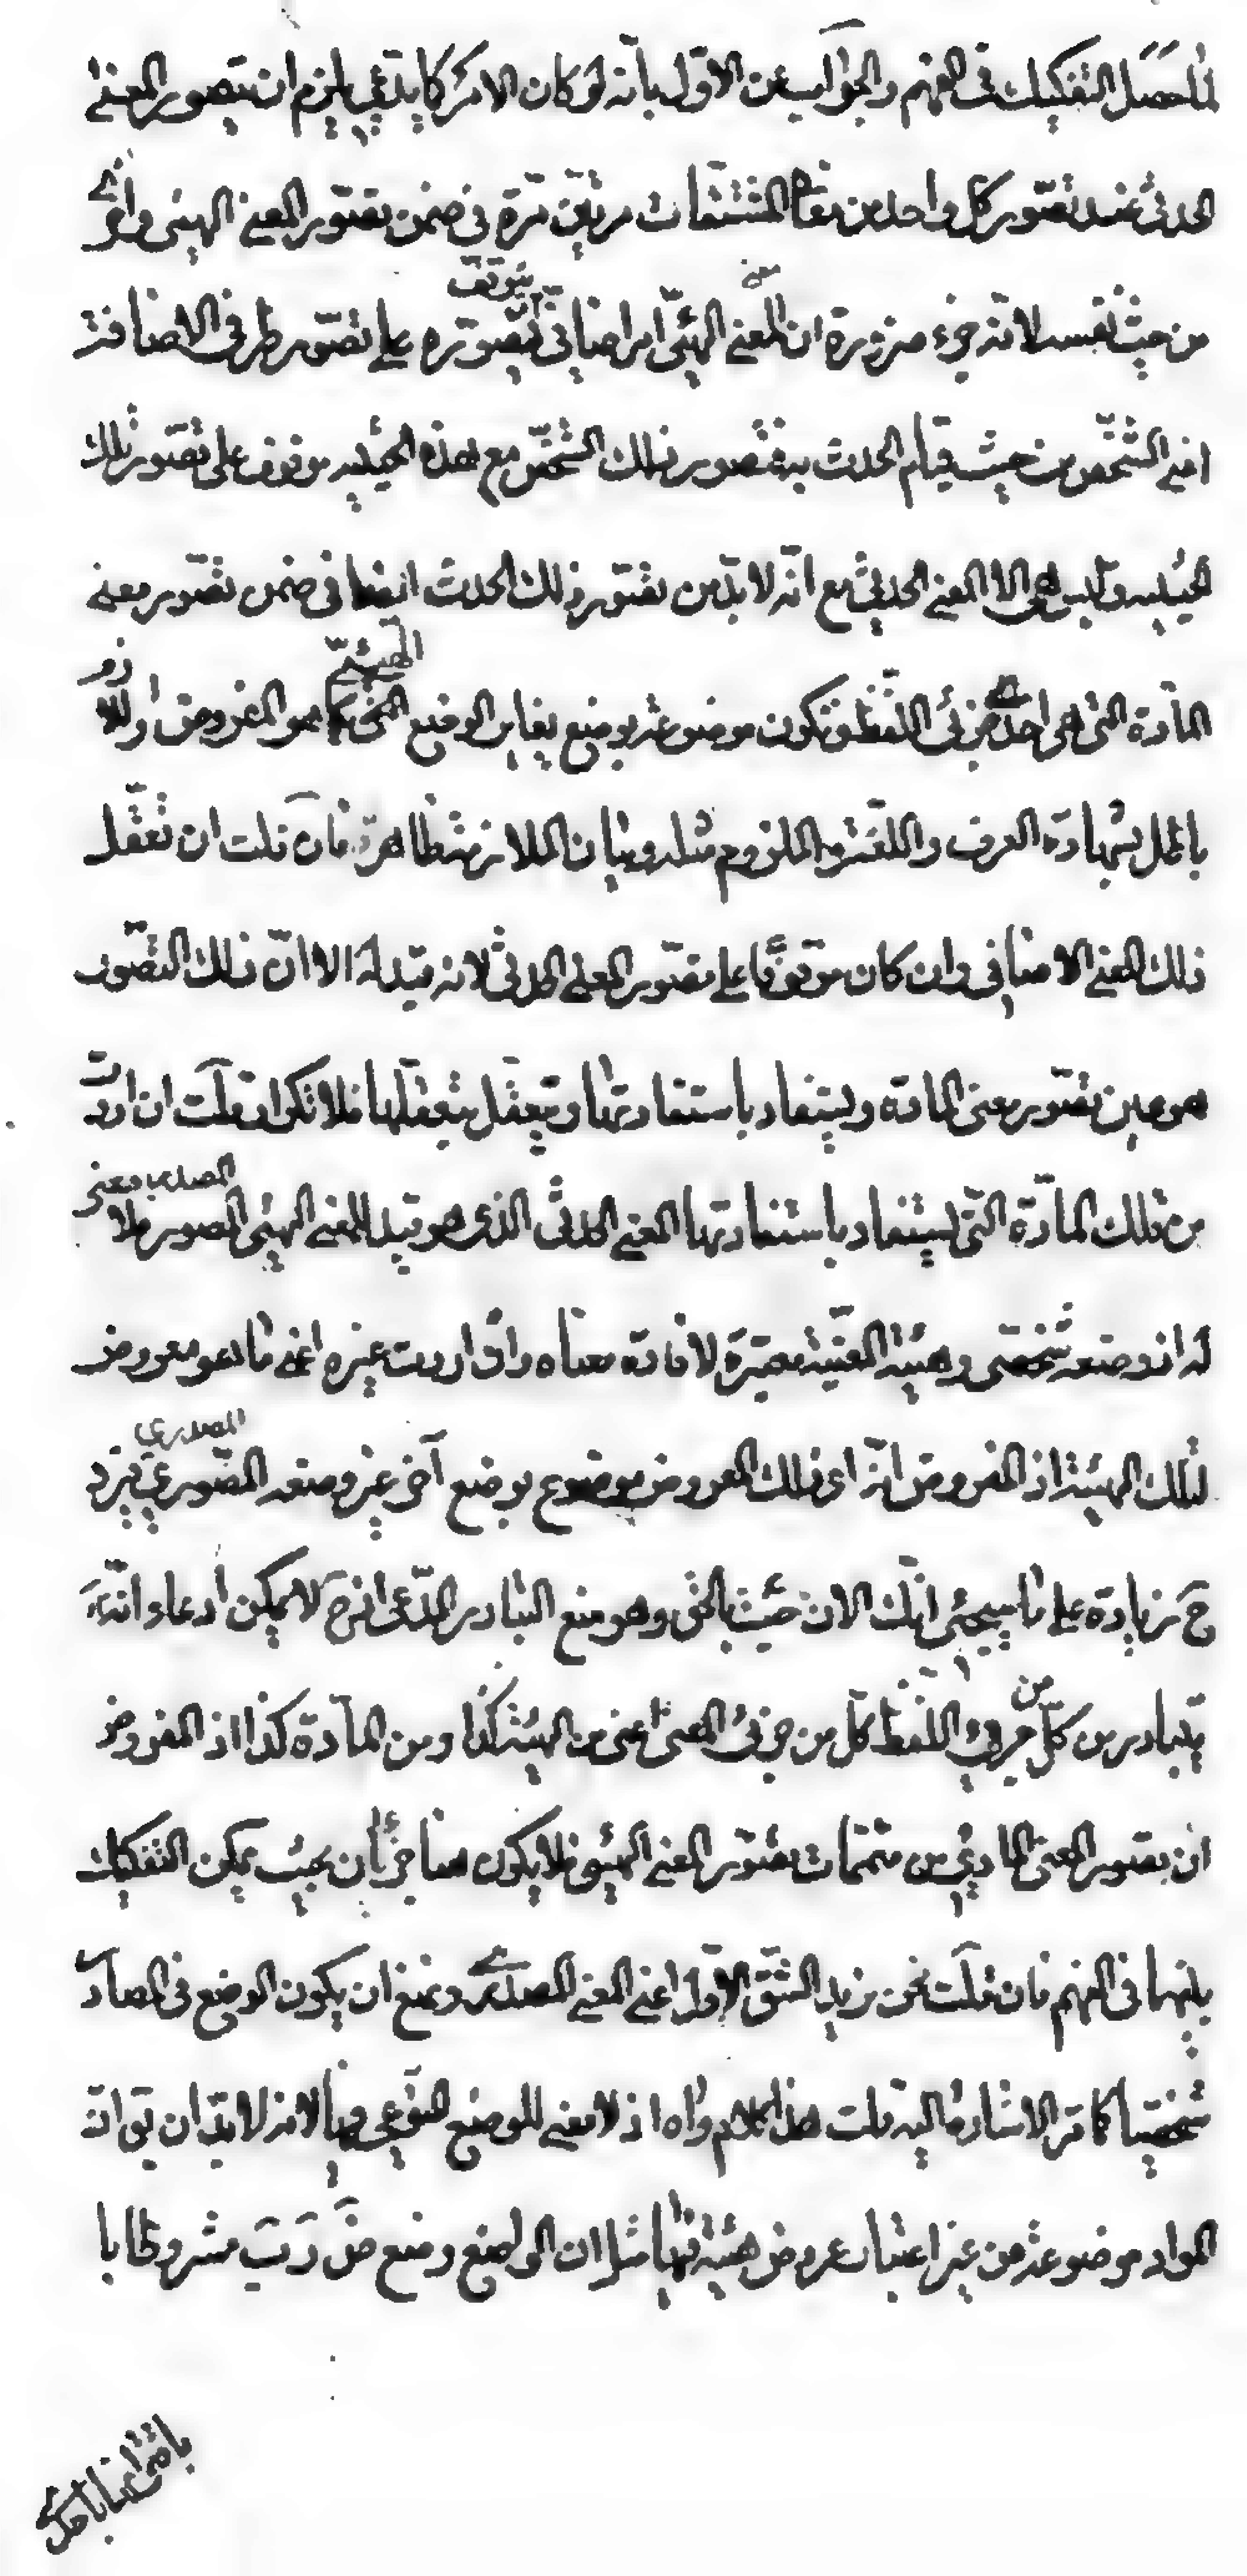 لما حصل التفكيك في الفهم والجواب عن الاول بانه لو كان الامر كما يدعى يلزم ان يتصور المعنى
الحدثي عند تصور كل واحد من المشتقات مرتين مرة في ضمن تصور المعنى الهيئي واخرى
من حيث نفسه لانه جزء ضرورة ان المعنى الهيئي امر اضافي يتوقف تصوره على تصور طرفي الاضافة
اعني الشخص من حيث قيام الحدث به فتصور ذلك الشخص مع هذه الحيثية موقوف على تصور تلك
الحيثية وليس هي الا المعنى الحدثي مع انه لا بد من تصور ذلك الحدث ايضا في ضمن تصور معنى
المادة التي هي احد جزئي اللفظ فتكون موضوعة بوضع يغاير الوضع الهيئي كما هو المفروض واللازم
باطل بشهادة العرف واللغة والملزوم مثله وبيان الملازمة ظاهرة فان قلت ان تعقل
ذلك المعنى الاضافي وان كان موقوفا على تصور المعنى الحدثي لانه قيد له الا ان ذلك التصور
هو عين تصور معنى المادة ويستفاد باستفادتها ويتعقل بتعقلها فلا تكرار قلت ان اردت
من تلك المادة التي يستفاد باستفادتها المعنى الحدثي الذي هو قيد للمعنى الهيئي المصدر فلا معنى
له اذ وضعه شخصي وهيئته المعينة معتبرة لافادة معناه وان اردت غيره اعني ما هو معروض
لتلك الهيئة اذ المفروض انه اى ذلك المعروض موضوع بوضع آخر غير وضعه المصدري فيرد
ح زيادة على ما سيجئ انك الان جئت بالحق وهو منع التبادر المدعى اذ ح لا يمكن ادعاء انه
يتبادر من كل من جزئي اللفظ كل من جزئي المعنى اعني من الهيئة كذا ومن المادة كذا اذ المفروض
ان تصور المعنى المادي من متممات تصور المعنى الهيئي فلا يكون هنا جزءان بحيث يمكن التفكيك
بينهما في الفهم فان قلت نحن نريد الشق الاول اعني المعنى المصدري ونمنع ان يكون الوضع في المصادر
شخصيا كما مر الاشارة اليه قلت هذا الكلام واه اذ لا معنى للوضع النوعي فيها لانه لا بد ان يق ان
المواد موضوعة من غير اعتبار عروض هيئة لها مثلا ان الواضع وضع ض ر ب مشروطا با